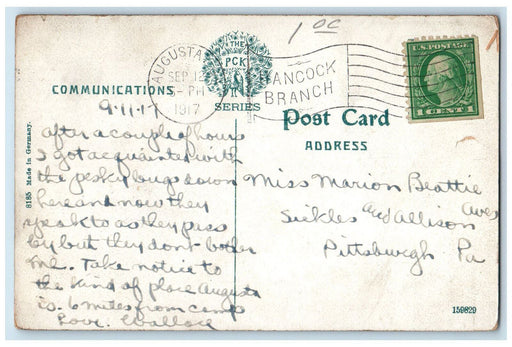 1 0C
AUGUSTA
SEP 12
5-PM
1917
HANCOCK
BRANCH
THE
PCK
SERIES
U.S. POSTAGE
1 CENT 1
COMMUNICATIONS
Post Card
ADDRESS
8185 Made in Germany.
9-11-17
After a couple of hours
I got acquainted with
the pesky bugs down
here and now they
speak to as they pass
by but they dont bother
me. Take notice to
the kind of place Augusta
is. 6 miles from camp
Love. Wallace
Miss Marion Beattie
Sickles and Allison Aves
Pittsburgh Pa
159829